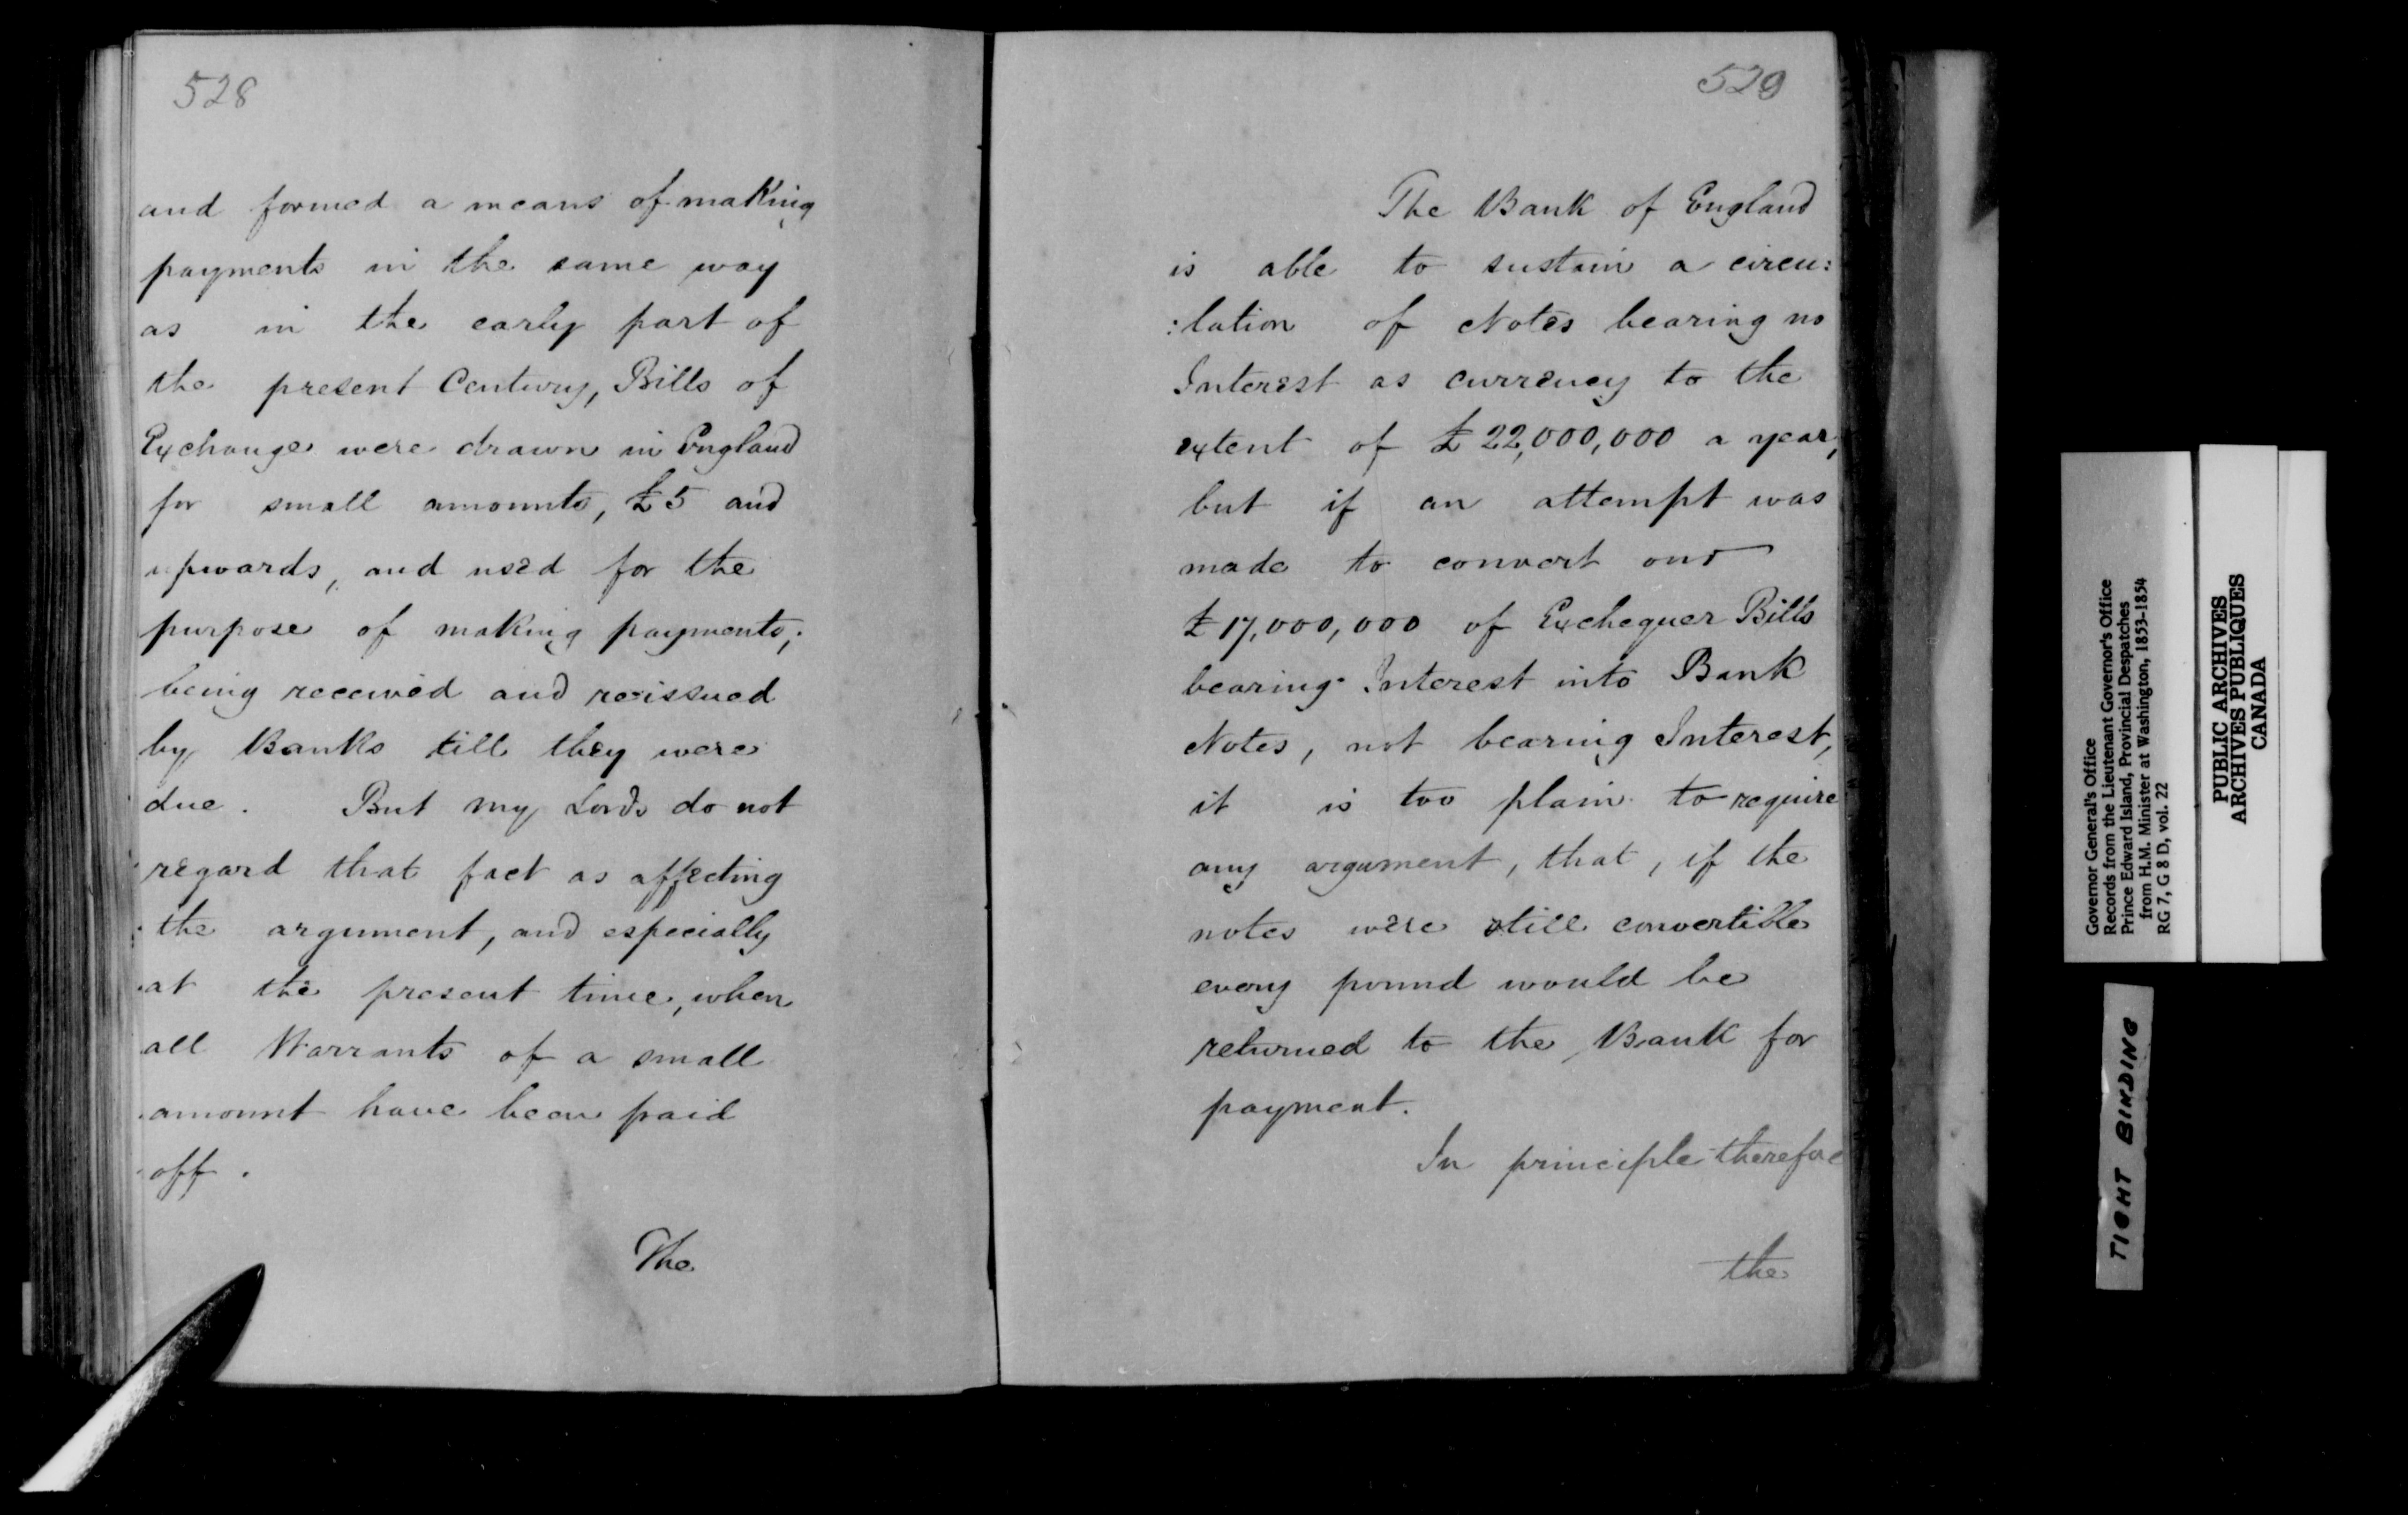 528
and formed a means of making
payments in the same way
as in the early part of
the present Century, Bills of
Exchange were drawn in England
for small amounts, £5 and
upwards, and used for the
purpose of making payments;
being received and reissued
by Banks till they were
due. But my Lords do not
regard that fact as affecting
the argument, and especially
at the present time, when
all Warrants of a small
amount have been paid
off.
The
529
The Bank of England
is able to sustain a circu:
:lation of Notes bearing no
Interest as currency to the
extent of £22,000,000 a year,
but if an attempt was
made to convert our
£17,000,000 of Exchequer Bills
bearing Interest into Bank
Notes, not bearing Interest,
it is too plain to require
any argument, that, if the
notes were still convertible
every pound would be
returned to the Bank for
payment.
In principle therefore
the
Governor General's Office
Records from the Lieutenant Governor's Office
Prince Edward Island, Provincial Despatches
from H.M. Minister at Washington, 1853-1854
RG 7, G 8 D, vol. 22
PUBLIC ARCHIVES
ARCHIVES PUBLIQUES
CANADA
TIGHT BINDING